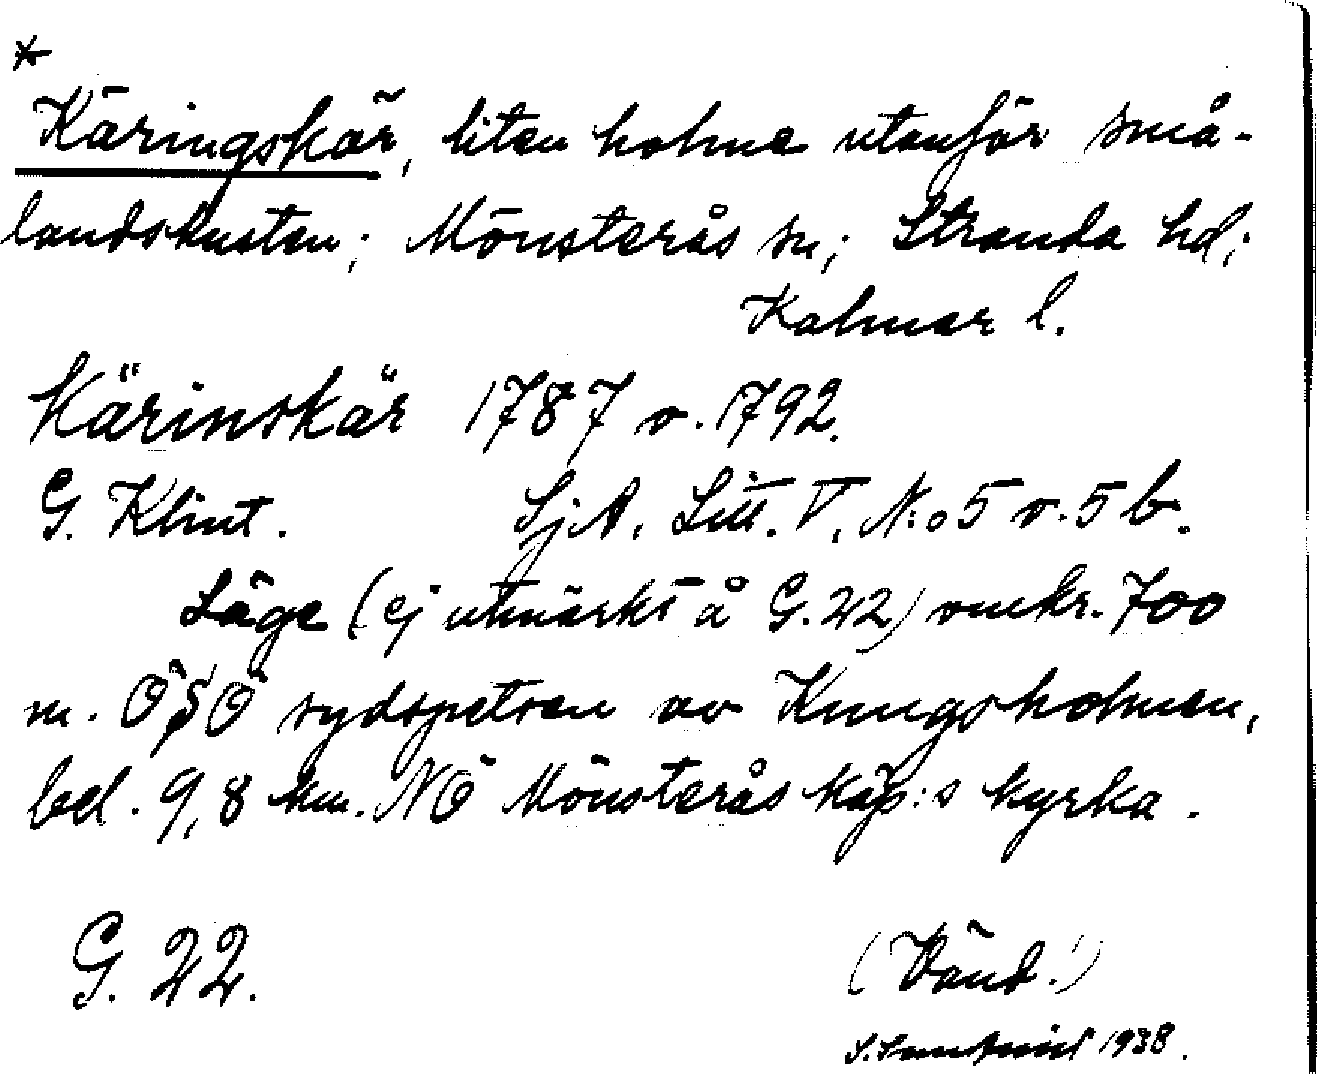 *
Käringskär, liten holme utanför små-
landskusten; Mönsterås sn; Stranda hd;
Kalmar l.
Kärinskär 1787 o. 1792.
G. Klint. SjA, Litt. V, N:o 5 o. 5 b.
Läge (ej utmärkt å G. 22) omkr. 700
m. ÖSÖ sydspetsen av Kungsholmen,
bel. 9,8 km. NÖ Mönsterås köp:s kyrka.
G. 22.
(Vänd!)
1938.